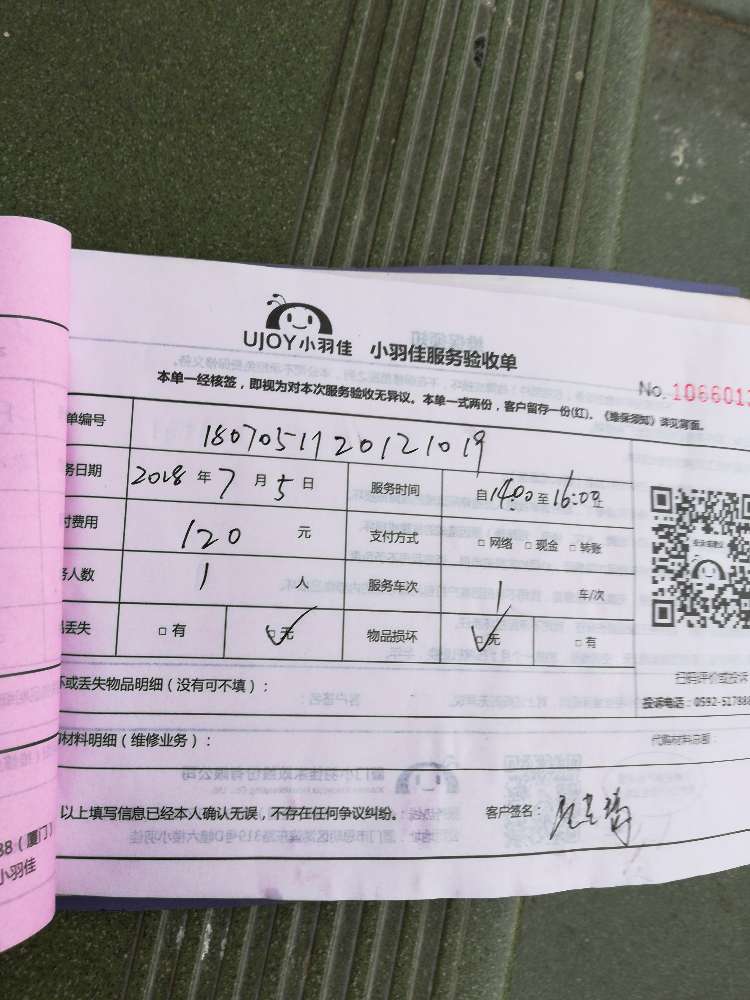 UJOY小羽佳 小羽佳服务验收单
本单一经核签，即视为对本次服务验收无异议。本单一式两份，客户留存一份(红)。《维保须知》详见背面。
No. 1066013
单编号 1807051120121019
务日期 2018年7月5日 服务时间 自14:00至16:00
付费用 120 元 支付方式 □ 网络 □ 现金 □ 转账
务人数 1 人 服务车次 1 车/次
丢失 □ 有 □ 无 物品损坏 □ 无 □ 有
坏或丢失物品明细（没有可不填）：
扫码评价或投诉
投诉电话：0592-517888
材料明细（维修业务）：
代购材料总额：
以上填写信息已经本人确认无误，不存在任何争议纠纷。 客户签名：
88（厦门）
小羽佳